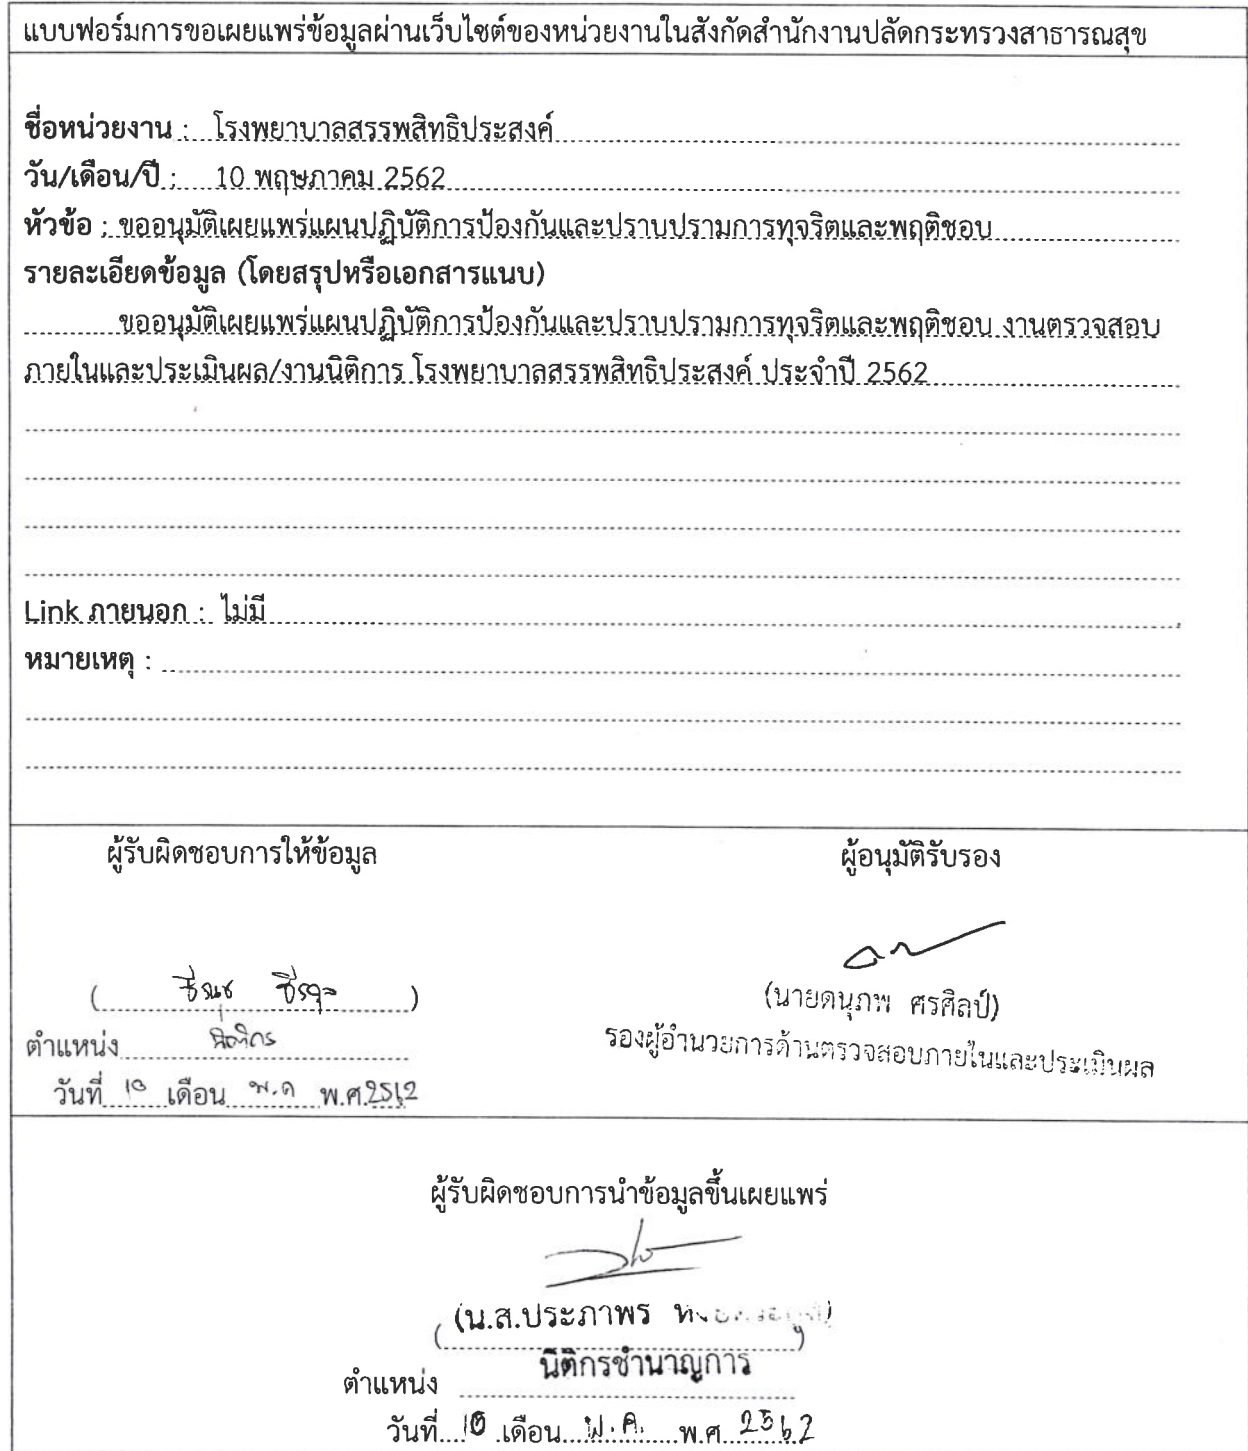 แบบฟอร์มการขอเผยแพร่ข้อมูลผ่านเว็บไซต์ของหน่วยงานในสังกัดสำนักงานปลัดกระทรวงสาธารณสุข
ชื่อหน่วยงาน : โรงพยาบาลสรรพสิทธิประสงค์
วัน/เดือน/ปี : 10 พฤษภาคม 2562
หัวข้อ : ขออนุมัติเผยแพร่แผนปฏิบัติการป้องกันและปราบปรามการทุจริตและพฤติชอบ
รายละเอียดข้อมูล (โดยสรุปหรือเอกสารแนบ)
ขออนุมัติเผยแพร่แผนปฏิบัติการป้องกันและปราบปรามการทุจริตและพฤติชอบ งานตรวจสอบ
ภายในและประเมินผล/งานนิติการ โรงพยาบาลสรรพสิทธิประสงค์ ประจำปี 2562
Link ภายนอก : ไม่มี
หมายเหตุ :
ผู้รับผิดชอบการให้ข้อมูล
( )
ตำแหน่ง นิติกร
วันที่ 10 เดือน พ.ค พ.ศ.2562
ผู้อนุมัติรับรอง
(นายดนุภพ ศรศิลป์)
รองผู้อำนวยการด้านตรวจสอบภายในและประเมินผล
ผู้รับผิดชอบการนำข้อมูลขึ้นเผยแพร่
(น.ส.ประภาพร )
ตำแหน่ง นิติกรชำนาญการ
วันที่ 10 เดือน พ.ค. พ.ศ 2562